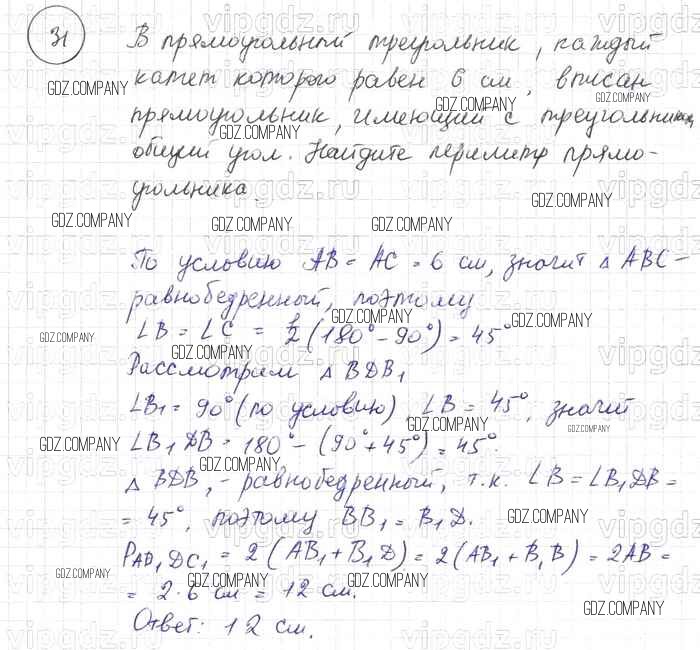 31
В прямоугольный треугольник, каждый
катет которого равен 6 см, вписан
прямоугольник, имеющий с треугольником
общий угол. Найдите периметр прямо-
угольника.
По условию AB = AC = 6 см, значит △ ABC -
равнобедренный, поэтому
∠B = ∠C = 1/2 (180° - 90°) = 45°
Рассмотрим △ BDB₁
∠B₁ = 90° (по условию), ∠B = 45°, значит
∠B₁DB = 180° - (90° + 45°) = 45°.
△ BDB₁ - равнобедренный, т.к. ∠B = ∠B₁DB =
= 45°, поэтому BB₁ = B₁D.
P AD₁DC₁ = 2 (AB₁ + B₁D) = 2 (AB₁ + B₁B) = 2AB =
= 2 · 6 см = 12 см.
Ответ: 12 см.
GDZ.COMPANY
vipgdz.ru